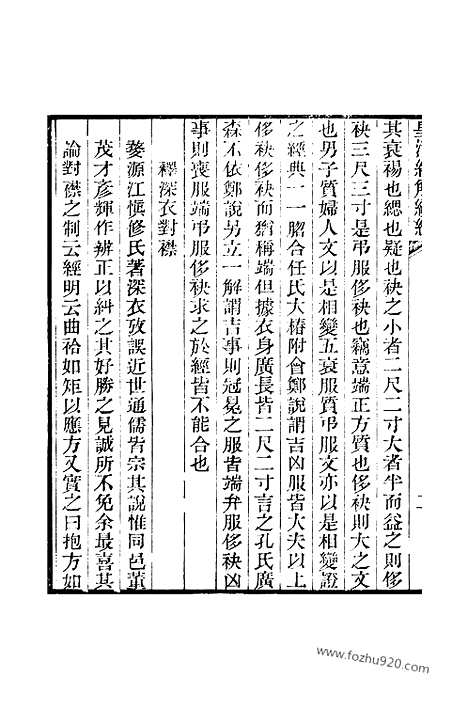 皇清經解續編
其衰裼也緦也疑也袂之小者二尺二寸大者半而益之則侈
袂三尺三寸是弔服侈袂也竊意端正方質也侈袂則大之文
也男子質婦人文以是相變五衰服質弔服文亦以是相變證
之經典一一脗合任氏大椿附會鄭說謂吉凶服皆大夫以上
侈袂侈袂而猶稱端但據衣身廣長皆二尺二寸言之孔氏廣
森不依鄭說另立一解謂吉事則冠冕之服皆端弁服侈袂凶
事則喪服端弔服侈袂求之於經皆不能合也
釋深衣對襟
婺源江愼修氏著深衣攷誤近世通儒皆宗其說惟同邑董
茂才彥輝作辨正以糾之其好勝之見誠所不免余最喜其
論對襟之制云經明云曲袷如矩以應方又實之曰抱方如
www.fozhu920.com